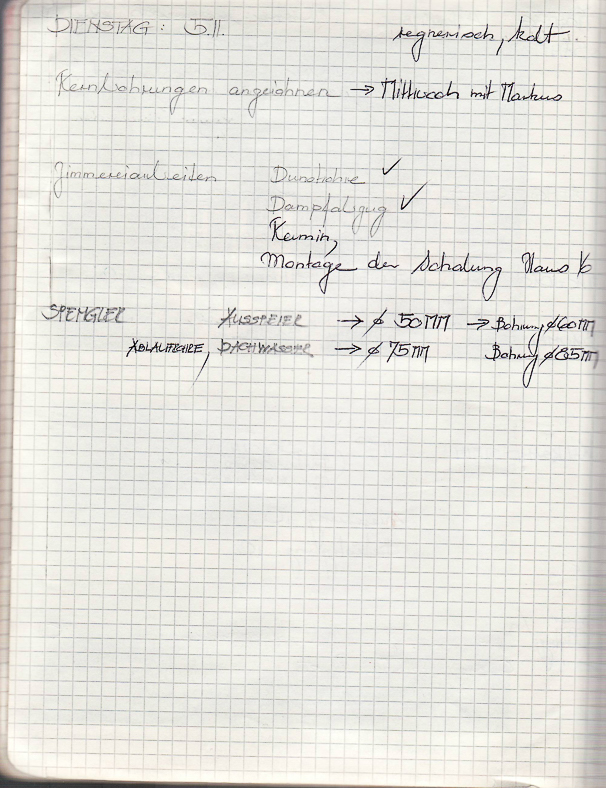 DIENSTAG: 5.11. regnerisch, kalt.
Kernbohrungen anzeichnen → Mittwoch mit Markus
Zimmereiarbeiten Dunstrohre ✓
Dampfabzug ✓
Kamin,
Montage der Schalung Haus
SPENGLER AUSSPEIER → ø 50MM → Bohrung ø60MM
ABLAUFROHRE, DACHWASSER → ø 75MM Bohrung ø85MM